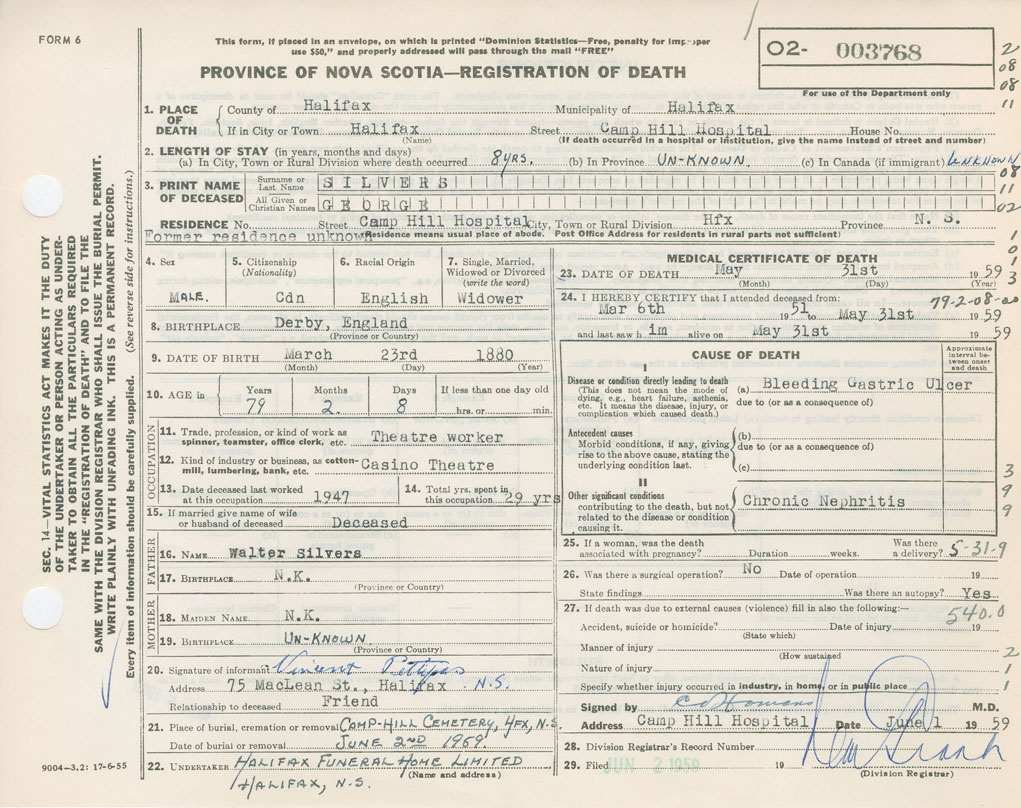 FORM 6
This form, if placed in an envelope, on which is printed "Dominion Statistics—Free, penalty for improper
use $50," and properly addressed will pass through the mail "FREE"
PROVINCE OF NOVA SCOTIA—REGISTRATION OF DEATH
02- 003768
For use of the Department only
2
08
08
11
1. PLACE OF DEATH
County of Halifax Municipality of Halifax
If in City or Town Halifax Street Camp Hill Hospital House No.
(Name) (If death occurred in a hospital or institution, give the name instead of street and number)
2. LENGTH OF STAY (in years, months and days)
(a) In City, Town or Rural Division where death occurred 8 yrs. (b) In Province UN-KNOWN. (c) In Canada (if immigrant) UNKNOWN
08
11
02
3. PRINT NAME OF DECEASED
Surname or Last Name SILVERS
All Given or Christian Names GEORGE
RESIDENCE No. Street Camp Hill Hospital City, Town or Rural Division Hfx Province N. S.
Former residence unknown Residence means usual place of abode. Post Office Address for residents in rural parts not sufficient)
1
0
1
3
4. Sex
MALE.
5. Citizenship (Nationality)
Cdn
6. Racial Origin
English
7. Single, Married, Widowed or Divorced (write the word)
Widower
8. BIRTHPLACE Derby, England
(Province or Country)
9. DATE OF BIRTH March 23rd 1880
(Month) (Day) (Year)
10. AGE in
Years Months Days If less than one day old
79 2. 8 hrs. or min.
OCCUPATION
11. Trade, profession, or kind of work as
spinner, teamster, office clerk, etc. Theatre worker
12. Kind of industry or business, as cotton-
mill, lumbering, bank, etc. Casino Theatre
13. Date deceased last worked
at this occupation 1947
14. Total yrs. spent in
this occupation 29 yrs
15. If married give name of wife
or husband of deceased Deceased
FATHER
16. NAME Walter Silvers
17. BIRTHPLACE N.K.
(Province or Country)
MOTHER
18. MAIDEN NAME N.K.
19. BIRTHPLACE UN-KNOWN
(Province or Country)
20. Signature of informant Vincent Pettipas
Address 75 MacLean St., Halifax N.S.
Relationship to deceased Friend
21. Place of burial, cremation or removal CAMP-HILL CEMETERY, HFX, N.S.
Date of burial or removal JUNE 2ND 1959.
22. UNDERTAKER HALIFAX FUNERAL HOME LIMITED
(Name and address)
HALIFAX, N.S.
MEDICAL CERTIFICATE OF DEATH
23. DATE OF DEATH May 31st 1959
(Month) (Day) (Year)
24. I HEREBY CERTIFY that I attended deceased from: 79-2-08-
Mar 6th 1951 to May 31st 1959
and last saw him alive on May 31st 1959
CAUSE OF DEATH
Approximate interval between onset and death
I
Disease or condition directly leading to death
(This does not mean the mode of
dying, e.g., heart failure, asthenia,
etc. It means the disease, injury, or
complication which caused death.)
(a) Bleeding Gastric Ulcer
due to (or as a consequence of)
Antecedent causes
Morbid conditions, if any, giving
rise to the above cause, stating the
underlying condition last.
(b)
due to (or as a consequence of)
(c)
II
Other significant conditions
contributing to the death, but not
related to the disease or condition
causing it.
Chronic Nephritis
3
9
9
25. If a woman, was the death
associated with pregnancy? Duration weeks. Was there a delivery? 5-31-9
26. Was there a surgical operation? No Date of operation 19
State findings Was there an autopsy? Yes
27. If death was due to external causes (violence) fill in also the following:— 540.0
Accident, suicide or homicide? Date of injury 19
(State which)
Manner of injury 2
(How sustained
Nature of injury 1
Specify whether injury occurred in industry, in home, or in public place 1
Signed by M.D.
Address Camp Hill Hospital Date June 1 1959
28. Division Registrar's Record Number
29. Filed JUN 2 1959 19
(Division Registrar)
SEC. 14—VITAL STATISTICS ACT MAKES IT THE DUTY
OF THE UNDERTAKER OR PERSON ACTING AS UNDER-
TAKER TO OBTAIN ALL THE PARTICULARS REQUIRED
IN THE "REGISTRATION OF DEATH" AND TO FILE THE
SAME WITH THE DIVISION REGISTRAR WHO SHALL ISSUE THE BURIAL PERMIT.
WRITE PLAINLY WITH UNFADING INK. THIS IS A PERMANENT RECORD.
Every item of information should be carefully supplied. (See reverse side for instructions.)
9004—3.2: 17-6-55